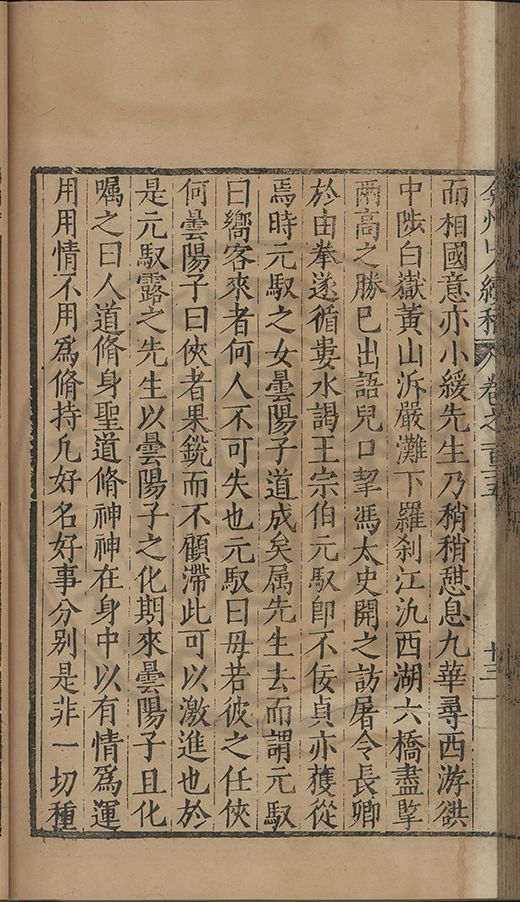 弇州山人續稿 卷之一百三五 十三
而相國意亦小緩先生乃稍稍憇息九華尋西游歙
中陟白嶽黃山泝嚴灘下羅刹江汎西湖六橋盡擥
兩高之勝已出語兒口挈馮太史開之訪屠令長卿
於由拳遂循婁水謁王宗伯元馭卽不佞貞亦獲從
焉時元馭之女曇陽子道成矣属先生去而謂元馭
曰嚮客來者何人不可失也元馭曰毋若彼之任俠
何曇陽子曰俠者果銳而不顧滯此可以激進也於
是元馭露之先生以曇陽子之化期來曇陽子且化
嘱之曰人道脩身聖道脩神神在身中以有情爲運
用用情不用爲脩持凢好名好事分别是非一切種